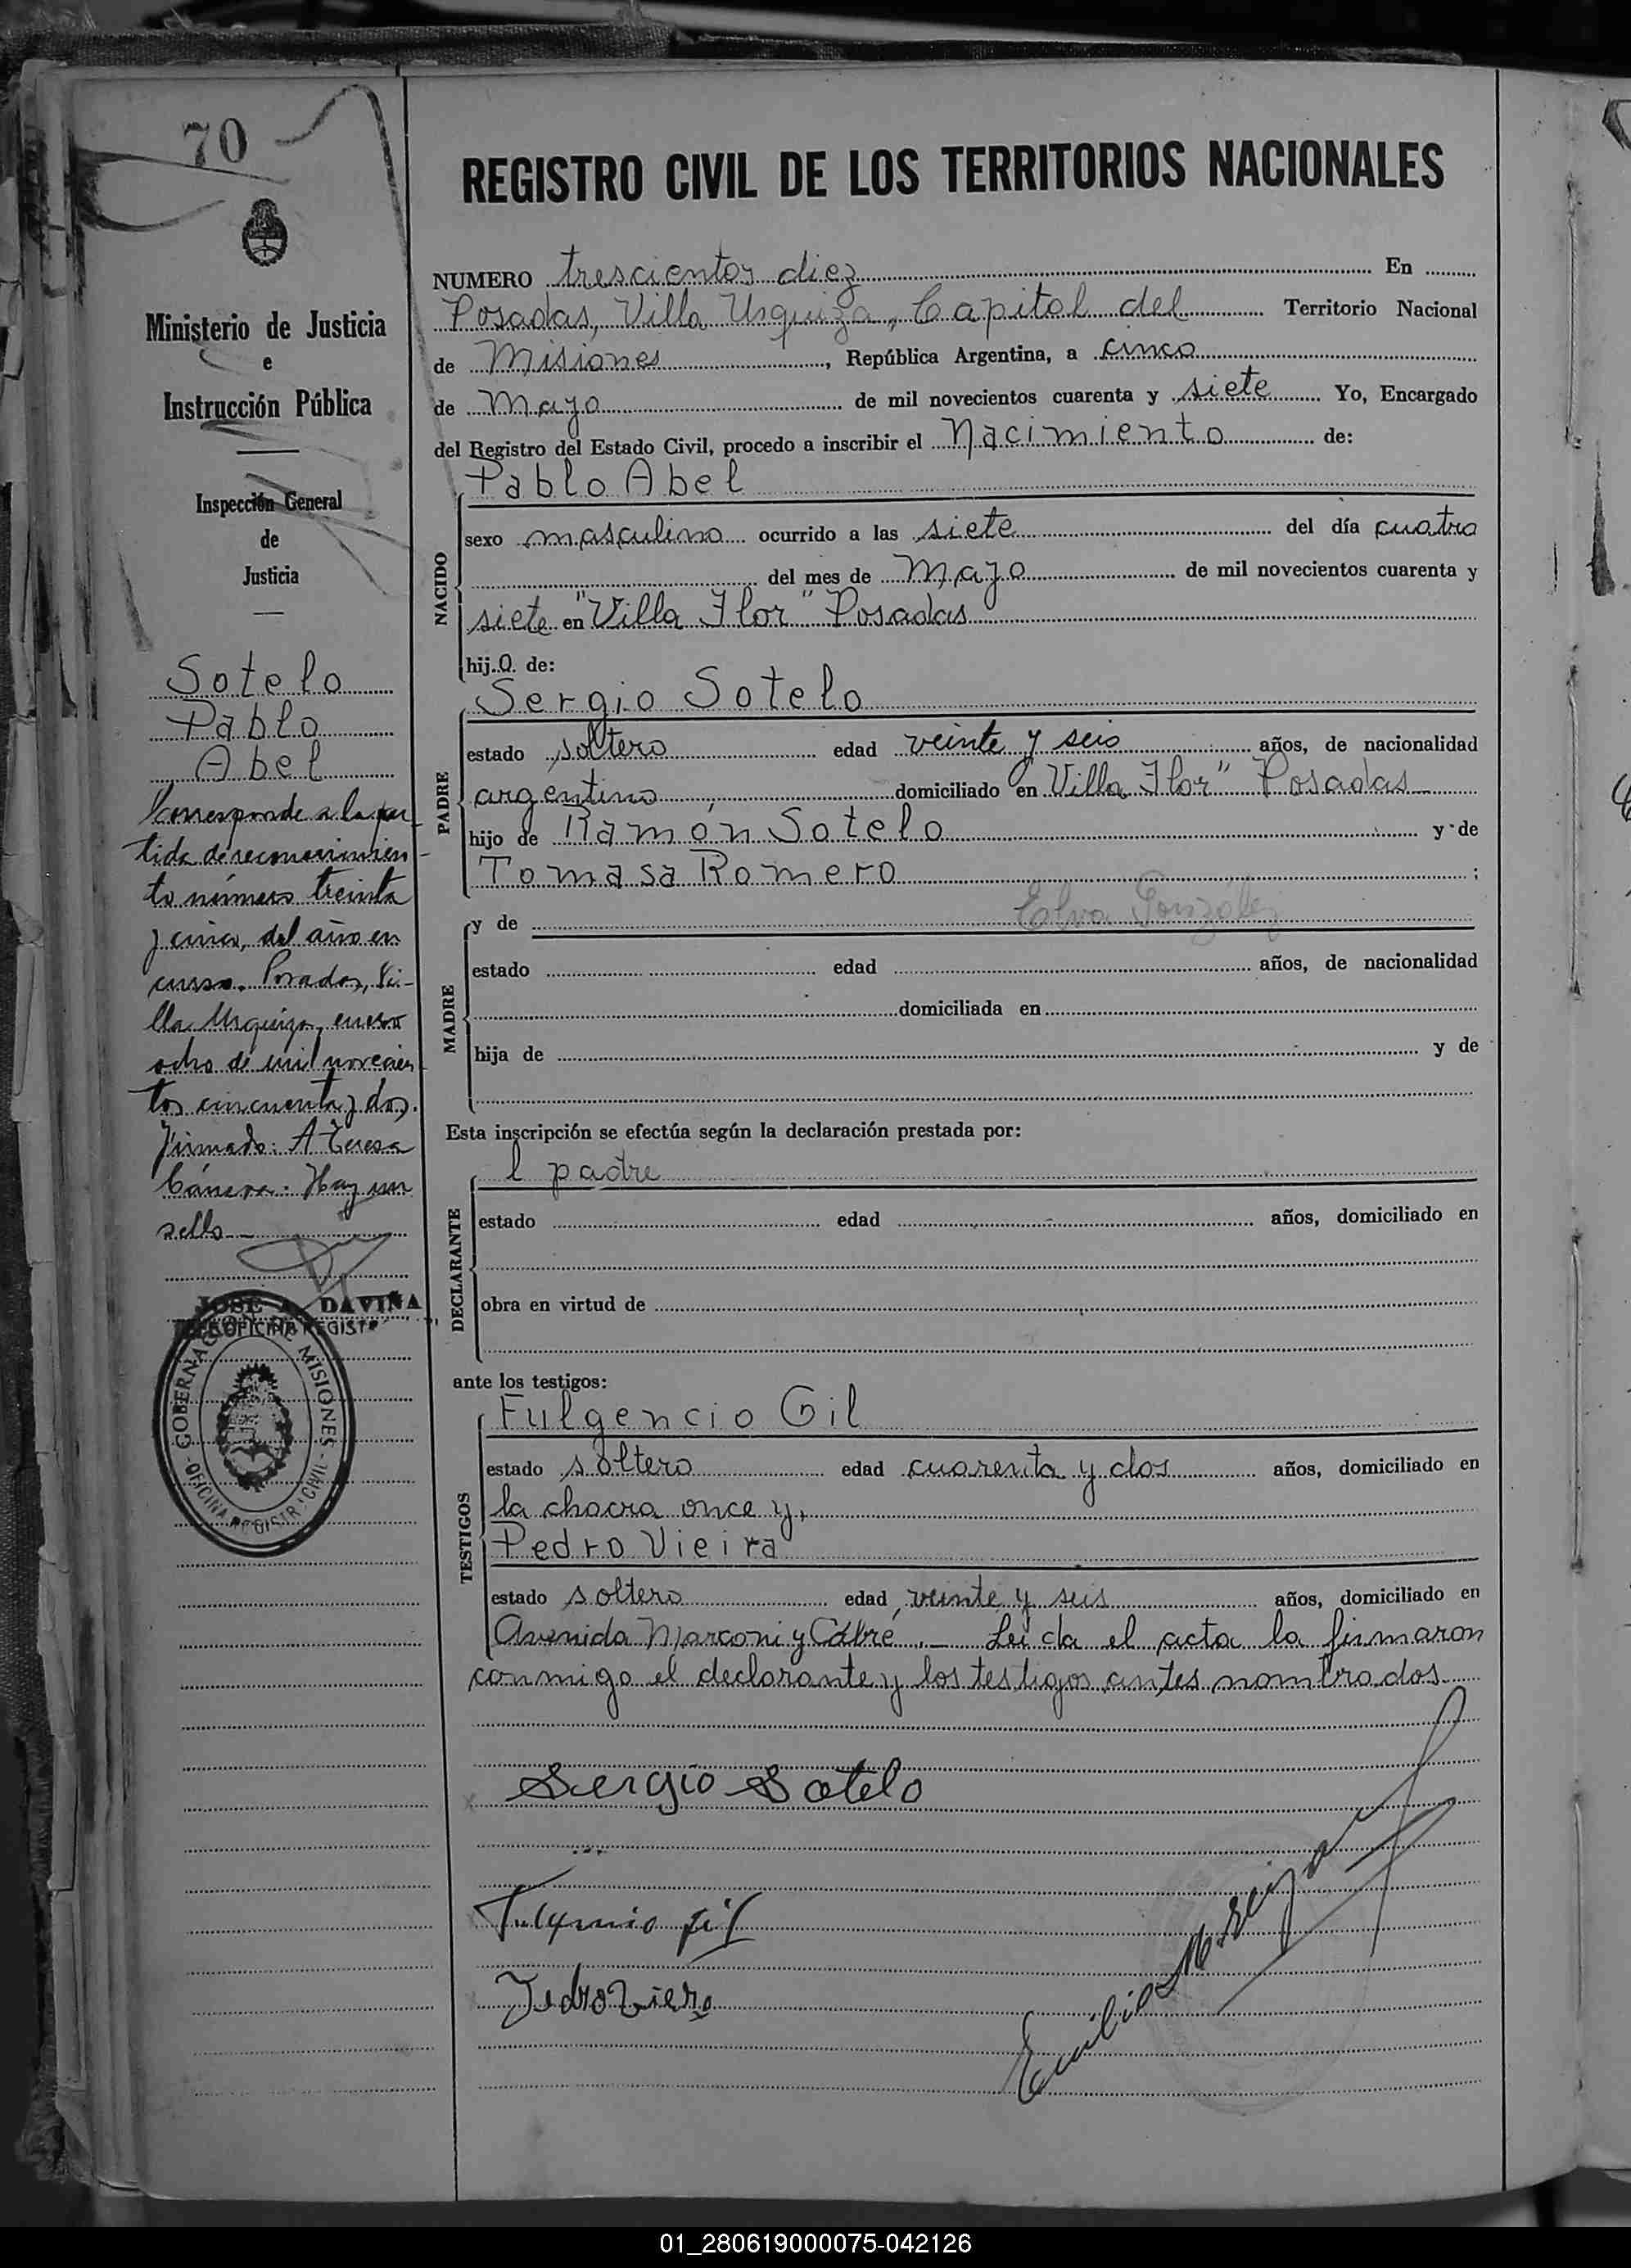 70
Ministerio de Justicia
e
Instrucción Pública
Inspección General
de
Justicia
Sotelo
Pablo
Abel
Corresponde a la par-
tida de reconocimien-
to número treinta
y cinco, del año en
curso. Posadas, Vi-
lla Urquiza, enero
ocho de mil novecien-
tos cincuenta y dos.
Firmado: A Teresa
Hay un
sello
JOSE A. DAVIÑA
OFICINA REGIST
GOBERNACION DE MISIONES
OFICINA REGISTRO CIVIL
REGISTRO CIVIL DE LOS TERRITORIOS NACIONALES
NUMERO trescientos diez En
Posadas, Villa Urquiza, Capital del Territorio Nacional
de Misiones, República Argentina, a cinco
de Mayo de mil novecientos cuarenta y siete Yo, Encargado
del Registro del Estado Civil, procedo a inscribir el Nacimiento de:
NACIDO
Pablo Abel
sexo masculino ocurrido a las siete del día cuatro
del mes de Mayo de mil novecientos cuarenta y
siete en "Villa Flor" Posadas
hij.o. de:
PADRE
Sergio Sotelo
estado soltero edad veinte y seis años, de nacionalidad
argentino, domiciliado en Villa Flor" Posadas
hijo de Ramón Sotelo y de
Tomasa Romero ;
MADRE
y de Elva González
estado edad años, de nacionalidad
domiciliada en
hija de y de
Esta inscripción se efectúa según la declaración prestada por:
DECLARANTE
l padre
estado edad años, domiciliado en
obra en virtud de
ante los testigos:
TESTIGOS
Fulgencio Gil
estado soltero edad cuarenta y dos años, domiciliado en
la chacra once y,
Pedro Vieira
estado soltero edad, veinte y seis años, domiciliado en
Avenida Marconi y Cabré ._ Leida el acta la firmaron
conmigo el declarante y los testigos antes nombrados
Sergio Sotelo
Fulgencio Gil
Pedro Viera
Emilio
01_280619000075-042126